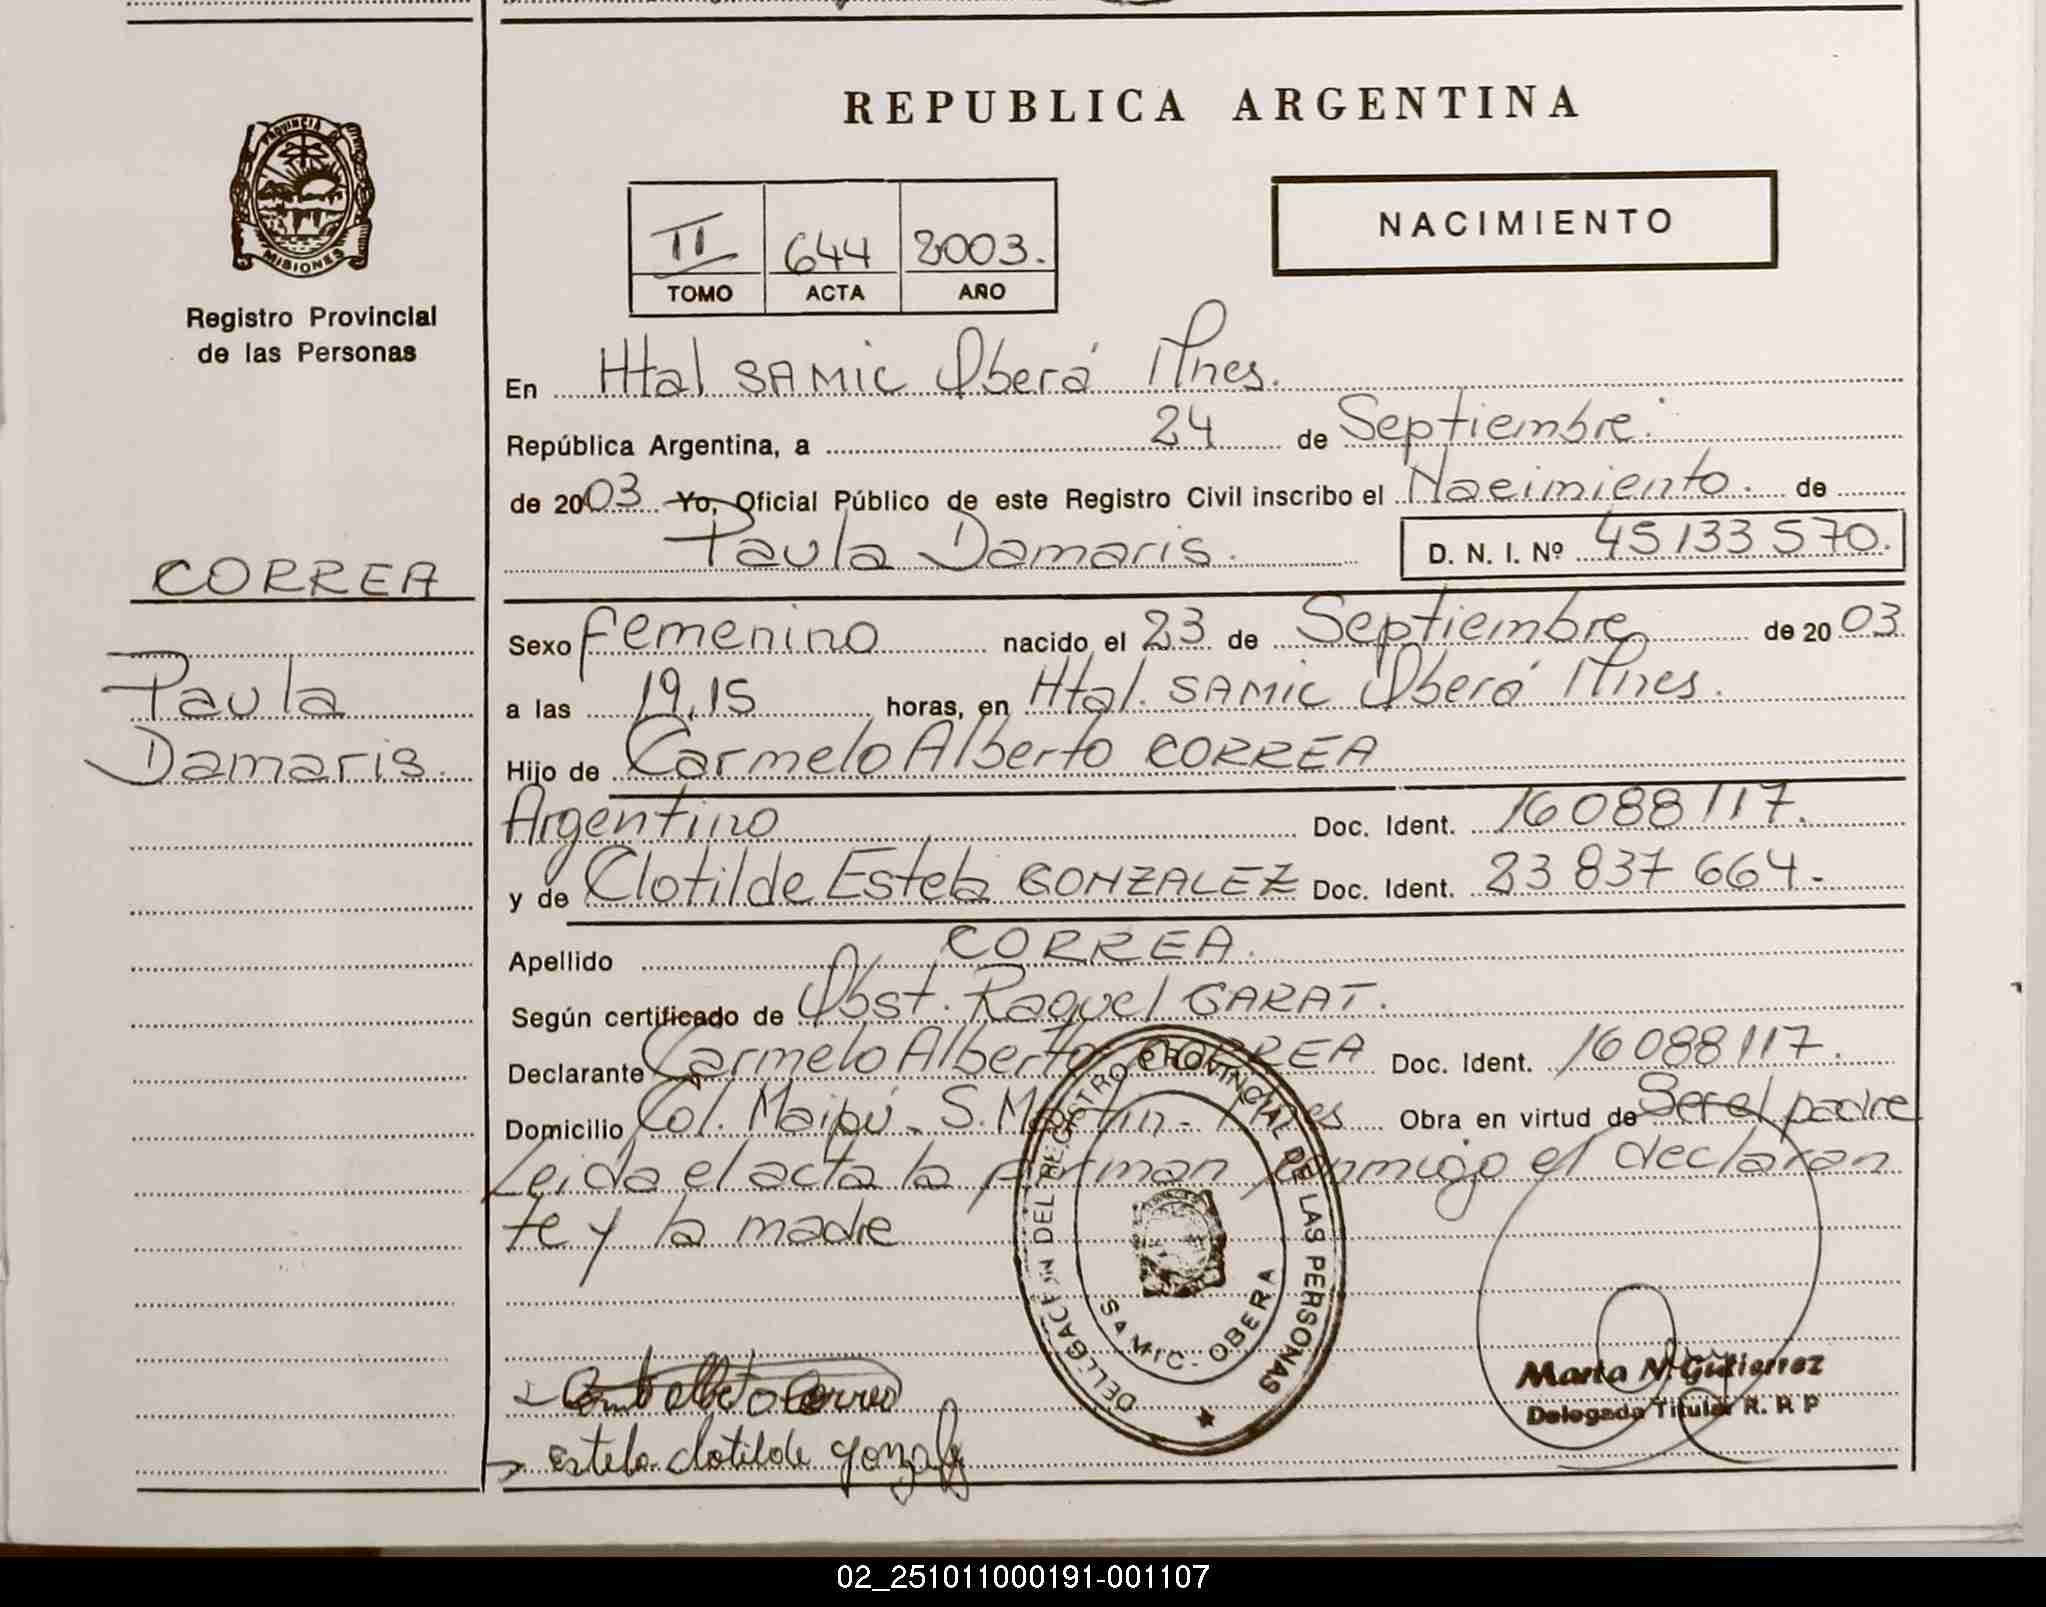 REPUBLICA ARGENTINA
PROVINCIA DE
MISIONES
Registro Provincial
de las Personas
II 644 2003.
TOMO ACTA AÑO
NACIMIENTO
En Htal SAMIC Oberá Mnes.
República Argentina, a 24 de Septiembre
de 2003 Yo, Oficial Público de este Registro Civil inscribo el Nacimiento de
Paula Damaris. D. N. I. Nº 45133570.
CORREA
Paula
Damaris.
Sexo femenino nacido el 23 de Septiembre de 2003
a las 19,15 horas, en Htal. SAMIC Oberá Mnes.
Hijo de Carmelo Alberto CORREA
Argentino Doc. Ident. 16088117.
y de Clotilde Estela GONZALEZ Doc. Ident. 23 837 664.
Apellido CORREA.
Según certificado de Obst. Raquel GARAT.
Declarante Carmelo Alberto CORREA Doc. Ident. 16088117.
Domicilio Col. Maipú - S. Martin - Mnes Obra en virtud de Ser el padre
Leida el acta la firman conmigo el declaran
te y la madre
DELEGACION DEL REGISTRO PROVINCIAL DE LAS PERSONAS
SAMIC - OBERA
estela clotilde gonzalez
Marta N. Gutierrez
Delegada Titular R. P. P
02_251011000191-001107